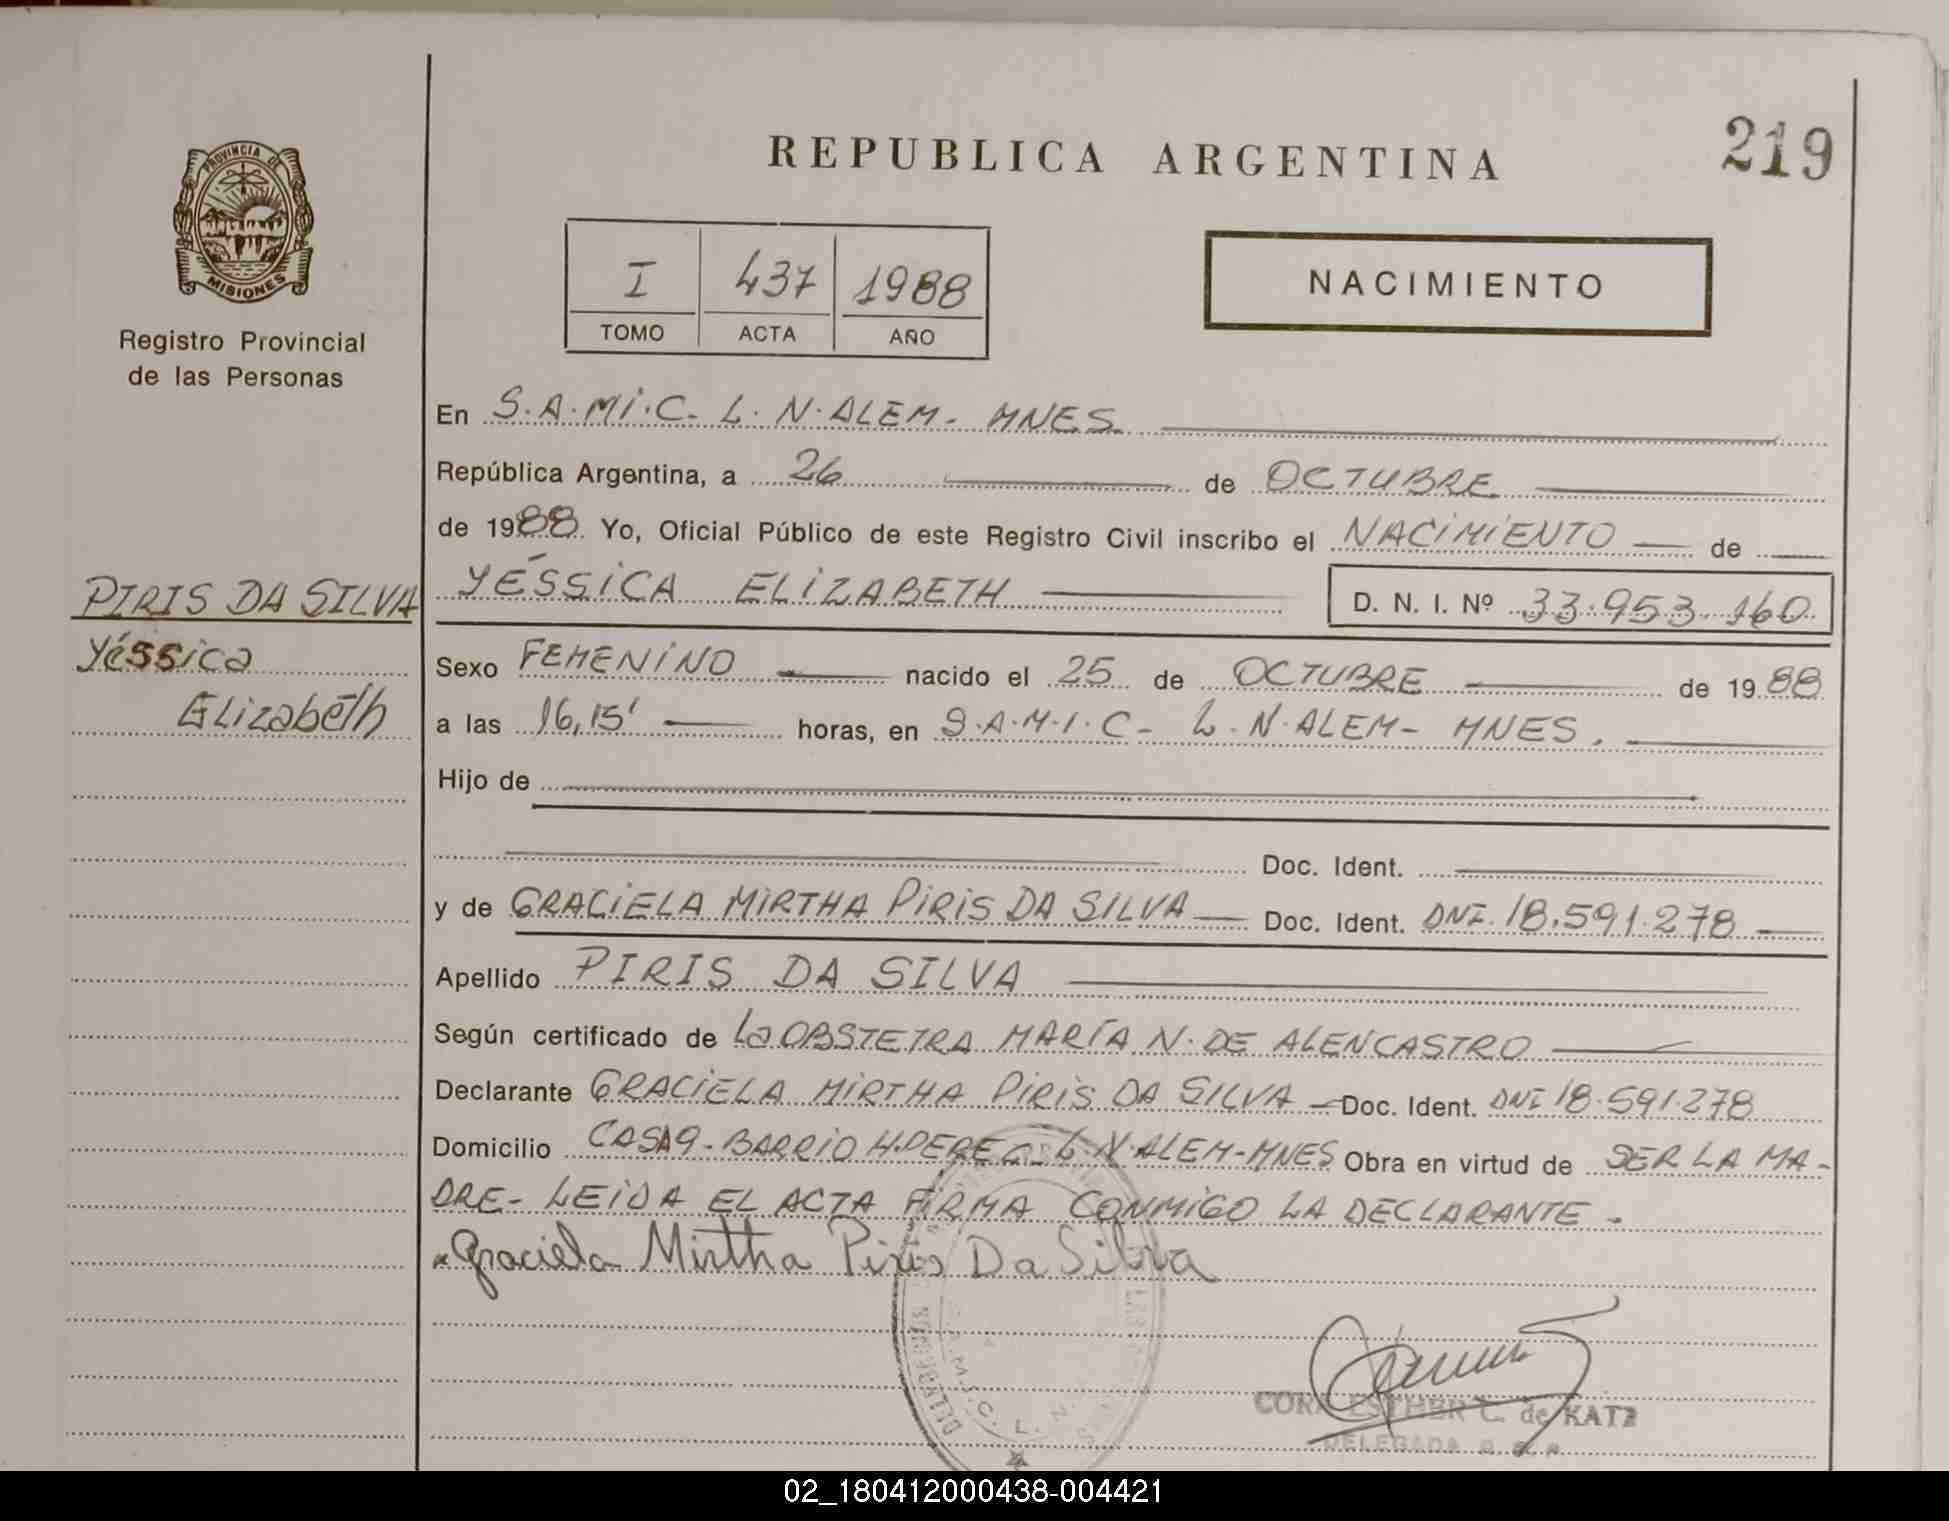 219
REPUBLICA ARGENTINA
PROVINCIA DE
MISIONES
Registro Provincial
de las Personas
I 437 1988
TOMO ACTA AÑO
NACIMIENTO
En S.A.Mi.C- L. N. ALEM- MNES.
República Argentina, a 26 de OCTUBRE
de 1988. Yo, Oficial Público de este Registro Civil inscribo el NACiMiENTO de
YÉSSiCA ELiZABETH D. N. I. Nº 33.953.160
PIRIS DA SILVA
Yéssica
Elizabeth
Sexo FEMENiNO nacido el 25 de OCTUBRE de 1988
a las 16,15' horas, en S.A.M.I.C- L.N.ALEM- MNES.
Hijo de
Doc. Ident.
y de GRACiELA MiRTHA PiRiS DA SILVA Doc. Ident. DNI. 18.591.278
Apellido PIRIS DA SILVA
Según certificado de La OBSTETRA MARÍA N. DE ALENCASTRO
Declarante GRACiELA MiRTHA PiRiS DA SILVA - Doc. Ident. DNI 18.591.278
Domicilio CASA 9- BARRiO H. - L. N. ALEM-MNES Obra en virtud de SER LA MA-
DRE- LEIDA EL ACTA FiRMA CONMIGO LA DECLARANTE.
Graciela Mirtha Piris Da Silva
S.A.M.I.C. L. N.
ESTHER L. de KATZ
DELEGADA
02_180412000438-004421